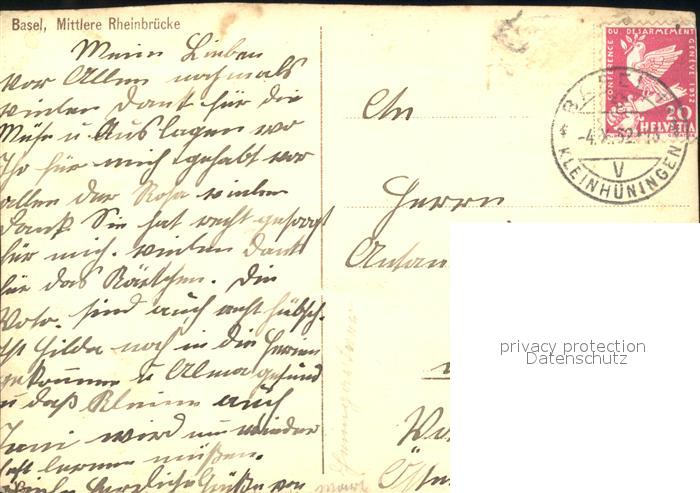 Basel, Mittlere Rheinbrücke
Meine Lieben
vor Allen nochmals
vielen Dank für die
Mühe u Auslagen wo
Ihr für mich gehabt vor
allen der Rosa vielen
Dank Sie hat recht gesorgt
für mich. vielen Dank
für das Kärtchen. Die
Foto. sind auch recht hübsch.
Ist Hilda noch in die Ferien
gekommen u Alma gesund
u daß Kleine auch
wird nun wieder
lernen müßen.
herzliche Grüße von
An
Herrn
Anton
CONFERENCE DU DESARMEMENT GENEVE 1932
20
HELVETIA
BASEL
-4.
32.
V
KLEINHÜNINGEN
privacy protection
Datenschutz